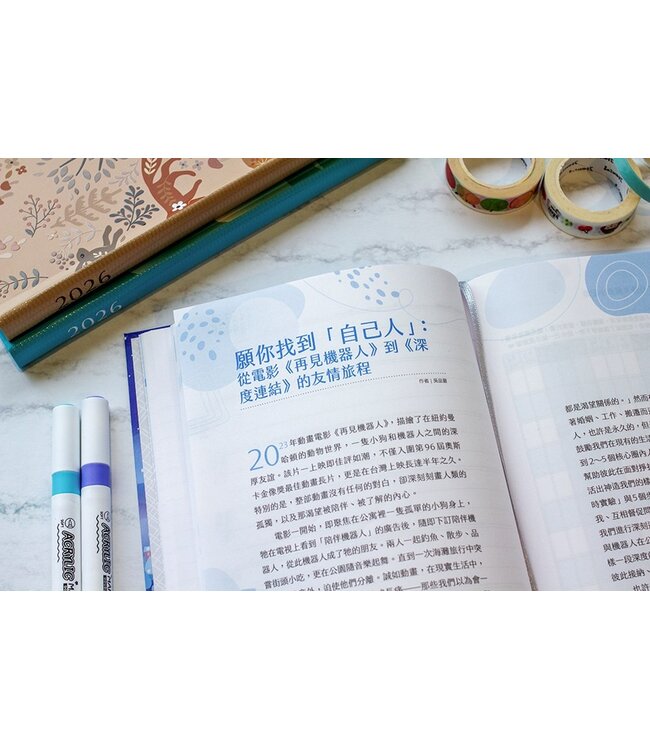 2026
2026
願你找到「自己人」：
從電影《再見機器人》到《深
度連結》的友情旅程
2023年動畫電影《再見機器人》，描繪了在紐約曼
哈頓的動物世界，一隻小狗和機器人之間的深
厚友誼。該片一上映即佳評如潮，不僅入圍第96屆奧斯
卡金像獎最佳動畫長片，更是在台灣上映長達半年之久。
特別的是，整部動畫沒有任何的對白，卻深刻刻畫人類的
孤獨，以及那渴望被陪伴、被了解的內心。
電影一開始，即聚焦在公寓裡一隻孤單的小狗身上，
牠在電視上看到「陪伴機器人」的廣告後，隨即下訂陪伴機
器人，從此機器人成了牠的朋友。兩人一起釣魚、散步、品
嘗街頭小吃，更在公園隨音樂起舞。直到一次海灘旅行中突
迫使他們分離。誠如動畫，在現實生活中，
那些我們以為會一
都是渴望關係的。」然而
著婚姻、工作、搬遷而
人，也許是永久的，但
鼓勵我們在現有的生活
到2~5個核心圈內
幫助彼此在面對掙
活出神造我們的樣
時實驗」與5個
我、互相督促
我們進行深刻
與機器人在公
樣一段深度
彼此接納、
也許
ACRYLIC
ACRYLIC